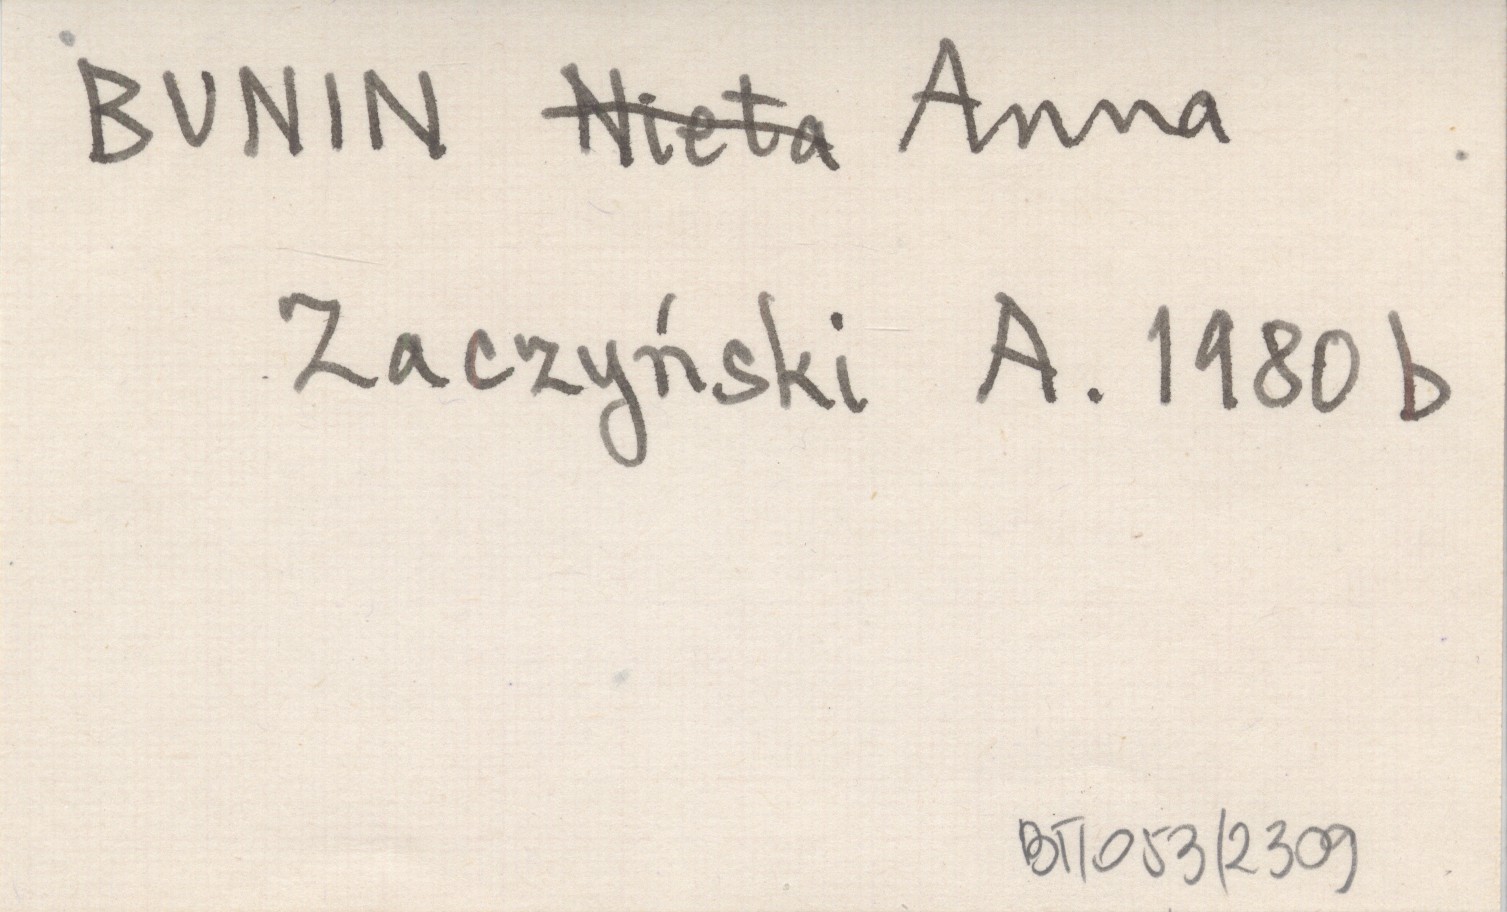 BUNIN Nieta Anna
Zaczyński A. 1980 b
BT/053/2309